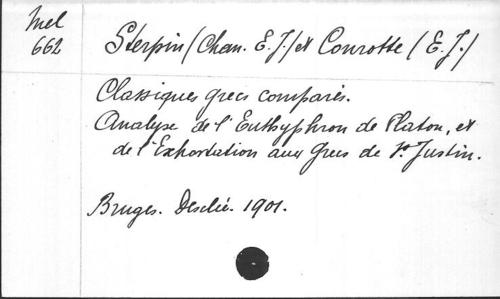 Mel
662
Sterpin (Chan. E. J.) et Courotte (E. J.)
Classiques grecs comparés.
Analyse de l'Euthyphron de Platon, et
de l'Exhortation aux Grecs de St Justin.
Bruges. Desclée. 1901.